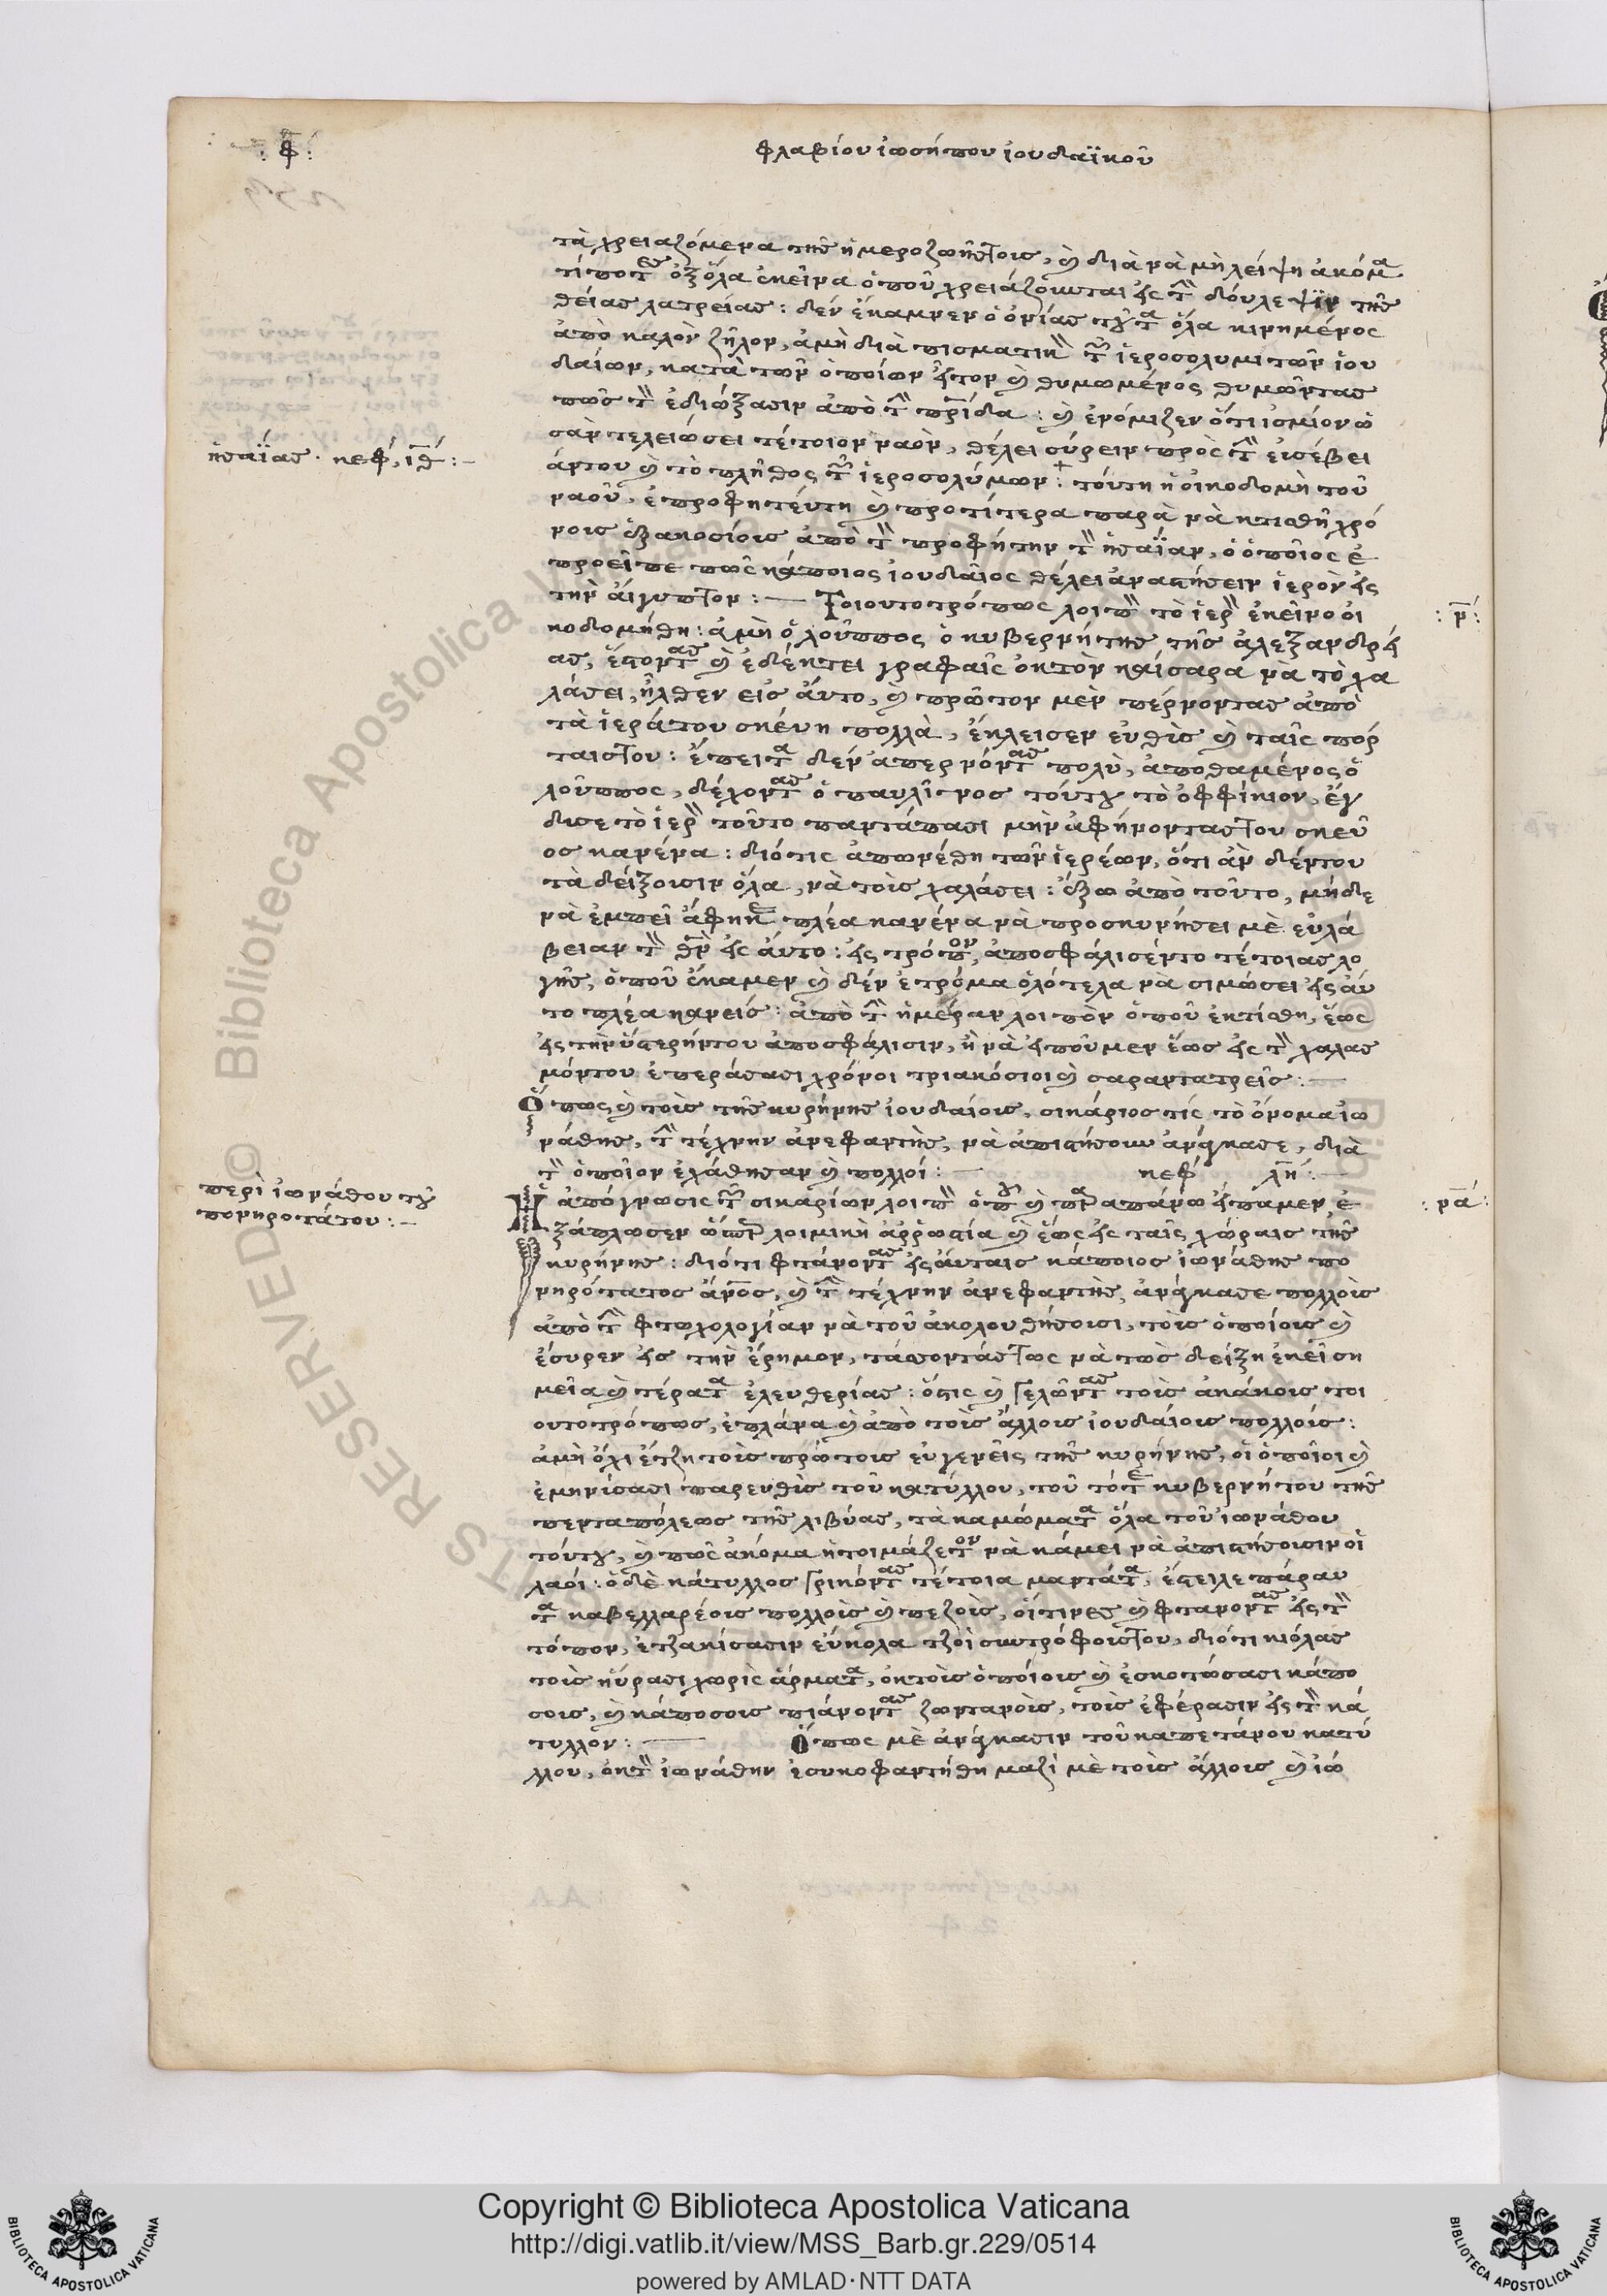 : φ :
φλαβίου ἰωσήπου ἰουδαϊκοῦ
τὰ χρειαζόμενα τῆς ἡμεροζωῆς τοις, ϗ διὰ νὰ μὴ λείψη ἀκόμα
τίποτες ὀξ ὅλα ἐκεῖνα ὁποῦ χρειάζουνται εἰς τὴν δούλεψιν τῆς
θείας λατρείας : δὲν ἔκαμνεν ὁ ὀνίας τοῦτα ὅλα κινημένος
ἀπὸ καλὸν ζῆλον, ἀμὴ διὰ πισματικὸν τῶν ἱεροσολυμιτῶν ἰου
δαίων, κατὰ τῶν ὁποίων ἦτον ϗ θυμωμένος θυμῶντας
πῶς τὸν ἐδιώξασιν ἀπὸ τὴν πρίδα : ϗ ἐνόμιζεν ὅτι
σὰν τελειώσει τέτοιον ναὸν, θέλει σύρειν πρὸς τὴν εὐσέβει
ἡσαΐας · κεφ, ιθ : –
άν του ϗ τὸ πλῆθος τῶν ἱεροσολύμων : τούτη ἡ οἰκοδομὴ τοῦ
ναοῦ, ἐπροφητεύτη ϗ προτίτερα παρὰ νὰ κτισθῆ χρό
νοις ἑξακοσίοις ἀπὸ τὸν προφήτην τὸν ἡσαΐαν, ὁ ὁποῖος ἐ
προεῖπε πῶς κάποιος ἰουδαῖος θέλει ἀναστήσειν ἱερὸν εἰς
τὴν αἴγυπτον : — Τοιουτοτρόπως λοιπὸν τὸ ἱερὸν ἐκεῖνο οἰ
: ρ :
κοδομήθη : ἀμὴ ὁ λοῦππος ὁ κυβερνήτης τῆς ἀλεξανδρεί
ας, ἔστοντας ϗ ἐδέκτει γραφαῖς ὀκ τὸν καίσαρα νὰ τὸ χα
λάσει, ἦλθεν εἰς αὐτο, ϗ πρῶτον μὲν πέρνοντας ἀπὸ
τὰ ἱερά του σκέυη πολλὰ, ἔκλεισεν εὐθὺς ϗ ταῖς πόρ
ταις του : ἔπειτα δὲν ἀπερνόντας πολὺ, ἀποθαμένος ὁ
λοῦππος, δέχοντας ὁ παυλῖνος τούτου τὸ ὀφφίκιον, ἔγ
δισε τὸ ἱερὸν τοῦτο παντάπασι μὴν ἀφήνοντας του σκεῦ
ος κανένα : διότις ἀπωνέθη τῶν ἱερέων, ὅτι ἂν δέν του
τὰ δείξουσιν ὅλα, νὰ τοῖς χαλάσει : ἔξω ἀπὸ τοῦτο, μήδε
νὰ ἐμπεῖ ἄφηκε πλέα κανένα νὰ προσκυνήσει μὲ εὐλά
βειαν τὸν θν εἰς αὐτο : εἰς τρόπον, ἀποσφάλισέν το τέτοιας λο
γῆς, ὁποῦ ἔκαμεν ϗ δὲν ἐτρόμα ὁλότελα νὰ σιμώσει εἰς αὐ
το πλέα κανεὶς : ἀπὸ τὴν ἡμέραν λοιπὸν ὁποῦ ἐκτίσθη, ἕως
εἰς τὴν ὑστερήν του ἀποσφάλισιν, ἢ νὰ εἰποῦμεν ἕως εἰς τὸν χαλασ
μόν του ἐπεράσασι χρόνοι τριακόσιοι ϗ σαραντατρεῖς : —
Ὅπως ϗ τοὶς τῆς κυρήνης ἰουδαίοις, σικάριος τὶς τὸ ὄνομα ἰω
νάθης, τὴν τέχνην ἀνεφαντὴς, νὰ ἀπιστήσουν ἀνάγκασε, διὰ
τὸν ὁποῖον ἐχάθησαν ϗ πολλοί : — κεφ λη : —
περὶ ἰωνάθου τοῦ
πονηροτάτου : –
Ἡ ἀπόγνωσις τῶν σικαρίων λοιπὸν ὁποῦ ϗ παραπάνω εἴπαμεν, ἐ
: ρα :
ξάπλωσεν ὥσπερ λοιμικὴ ἀρρωστία ϗ ἕως εἰς ταῖς χώραις τῆς
κυρήνης : διότι φτάνοντας εἰς αὐταις κάποιος ἰωνάθης πο
νηρότατος ἄνος, ϗ τὴν τέχνην ἀνεφαντὴς, ἀνάγκασε πολλοὶς
ἀπὸ τὴν φτωχολογίαν νὰ τοῦ ἀκολουθήσουσι, τοὶς ὁποίοις ϗ
ἔσυρεν εἰς τὴν ἔρημον, τάσσοντάς τως νὰ τῶς δείξη ἐκεῖ ση
μεῖα ϗ τέρατα ἐλευθερίας : ὅστις ϗ γελῶντας τοὶς ἀκάκοις τοι
ουτοτρόπως, ἐπλάνα ϗ ἀπὸ τοὶς ἄλλοις ἰουδαίοις πολλοίς :
ἀμὴ ὄχι ἔτζη τοὶς πρώτοις εὐγενεῖς τῆς κυρήνης, οἱ ὁποῖοι ϗ
ἐμηνίσασι παρευθὶς τοῦ κατύλλου, τοῦ τότε κυβερνήτου τῆς
πενταπόλεως τῆς λιβύας, τὰ καμώματα ὅλα τοῦ ἰωνάθου
τούτου, ϗ πῶς ἀκόμα ἡτοιμάζετον νὰ κάμει νὰ ἀπιστήσουσιν οἱ
λαόι : ὁ δὲ κάτυλλος γρικόντας τέτοια μαντάτα, ἔστειλε πάραυ
τα καβελλαρέοις πολλοὶς ϗ πεζοὶς, οἵτινες ϗ φτάνοντας εἰς τὸν
τόπον, ἐτζακίσασιν εὔκολα τζοὶ συντρόφοις του, διότι κιόλας
τοὶς ηὕρασι χωρὶς ἄρματα, ὀκ τοὶς ὁποίοις ϗ ἐσκοτώσασι κάπο
σοις, ϗ κάποσοις πιάνοντας ζωντανοὶς, τοὶς ἐφέρασιν εἰς τὸν κά
τυλλον : — Ὅπως μὲ ἀνάγκασιν τοῦ καπετάνου κατύ
λλου, ὀκ τὸν ἰωνάθην ἐσυκοφαντήθη μαζὶ μὲ τοὶς ἄλλοις ϗ ἰώ
Copyright © Biblioteca Apostolica Vaticana
http://digi.vatlib.it/view/MSS_Barb.gr.229/0514
powered by AMLAD·NTT DATA